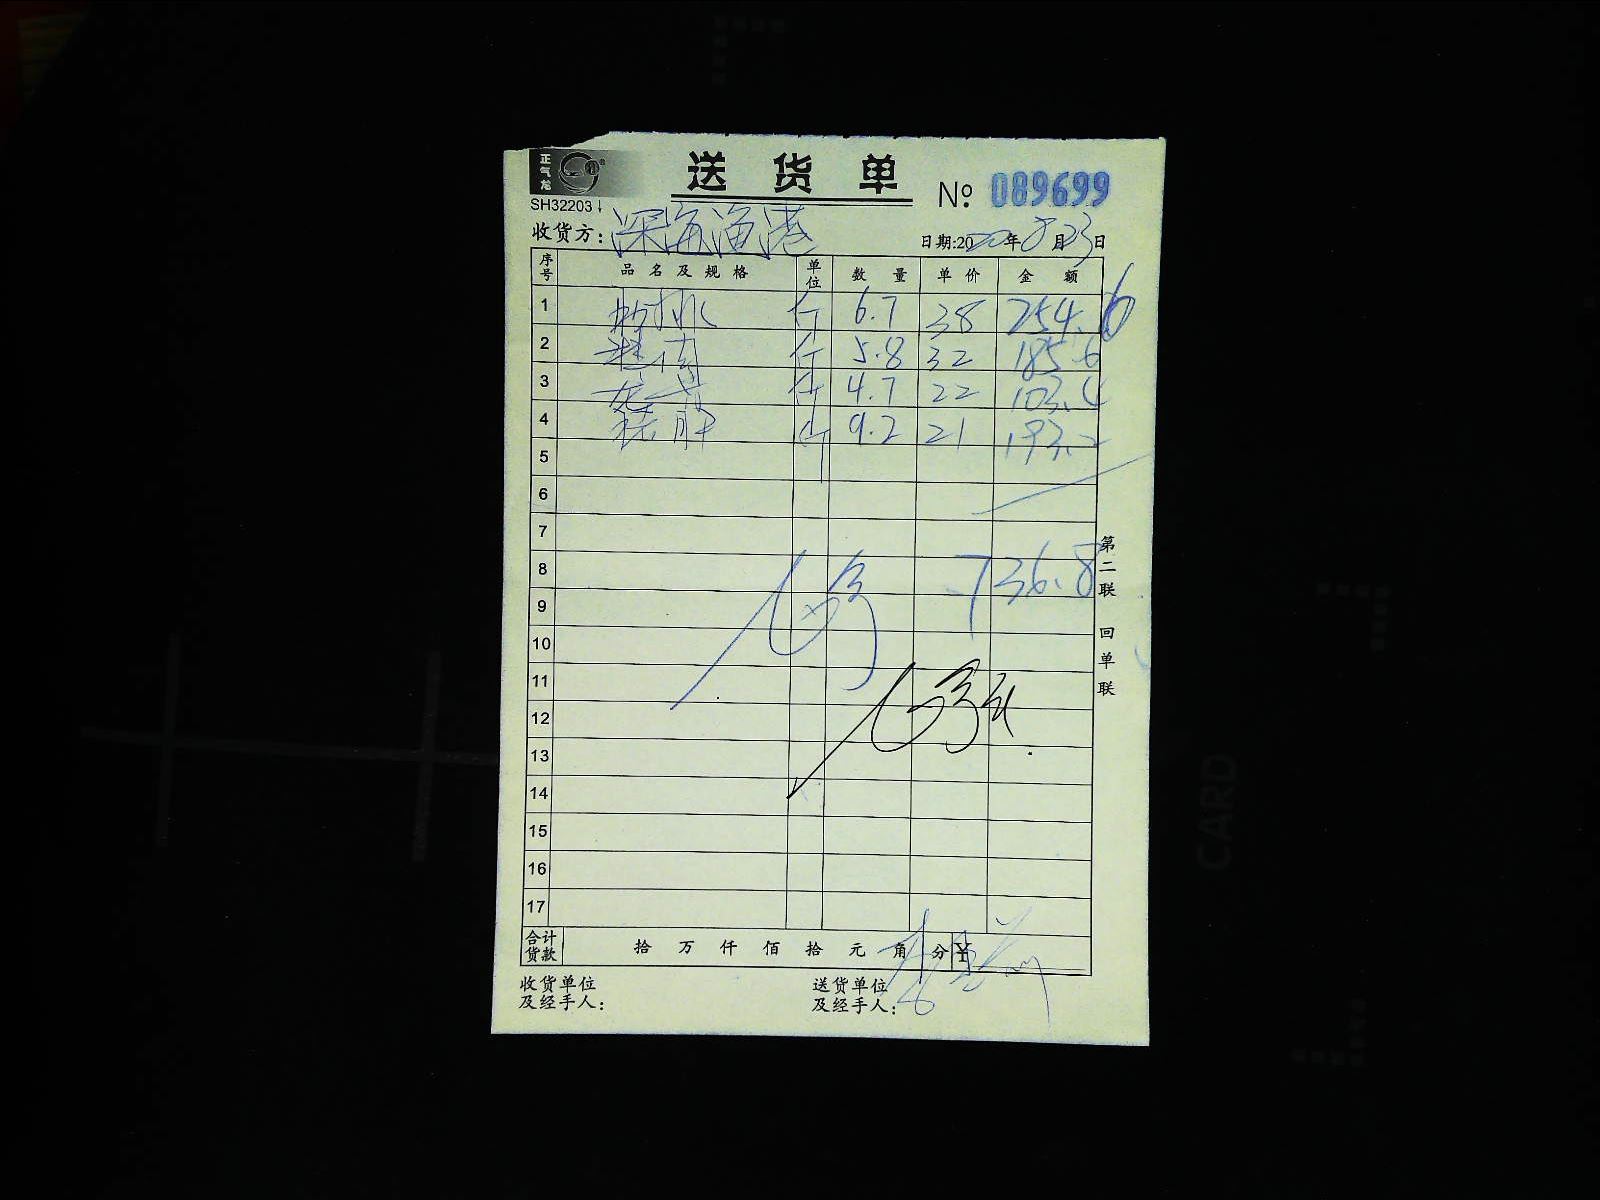 正气龙
送货单
№ 089699
SH32203
收货方：深海渔港
日期:2020年8月23日
序号 品名及规格 单位 数量 单价 金额
1 斤 6.7 38 254.6
2 斤 5.8 32 185.6
3 斤 4.7 22 103.4
4 斤 9.2 21 193.2
5
6
7
8 736.8
9
10
11
12
13
14
15
16
17
第二联 回单联
合计货款 拾 万 仟 佰 拾 元 角 分 ¥
收货单位及经手人：
送货单位及经手人：
CARD